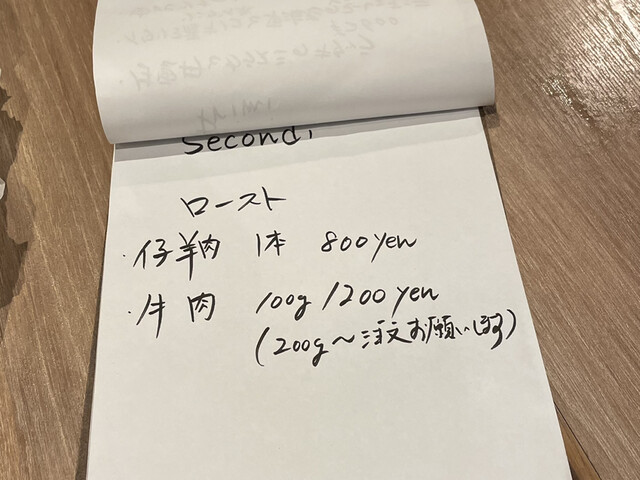 Secondi
ロースト
・仔羊肉 1本 800yen
・牛肉 100g 1200yen
(200g〜注文お願いします)